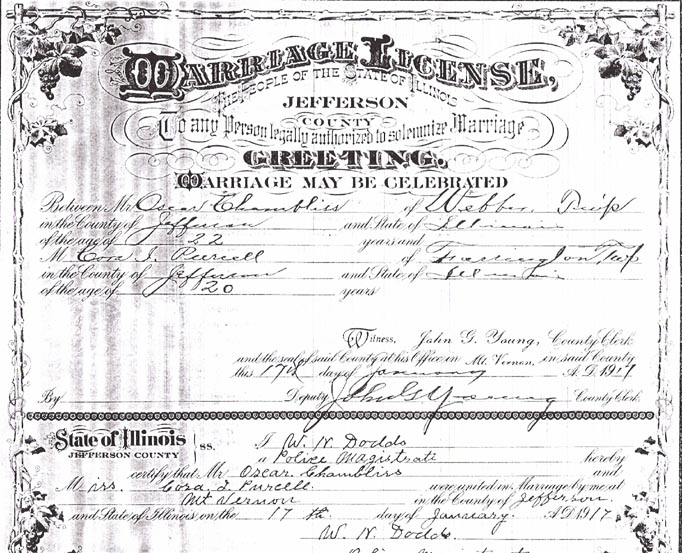 MARRIAGE LICENSE,
THE PEOPLE OF THE STATE OF ILLINOIS
JEFFERSON
COUNTY
To any Person legally authorized to solemnize Marriage
GREETING.
MARRIAGE MAY BE CELEBRATED
Between Mr Oscar Chambliss of Webber Twp
in the County of Jefferson and State of Illinois
of the age of 22 years and
M Cora I. Purcell of Farrington Twp
in the County of Jefferson and State of Illinois
of the age of 20 years
Witness, John G. Young, County Clerk
and the seal of said County at his Office in Mt. Vernon, in said County
this 17th day of January A.D. 1917
By Deputy John G Young County Clerk
State of Illinois
JEFFERSON COUNTY ss. I W. N. Dodds
a Police Magistrate hereby
certify that Mr Oscar Chambliss and
Miss. Cora I Purcell were united in Marriage by me at
Mt Vernon in the County of Jefferson
and State of Illinois on the 17th day of January A.D. 1917
W. N. Dodds
Police Magistrate